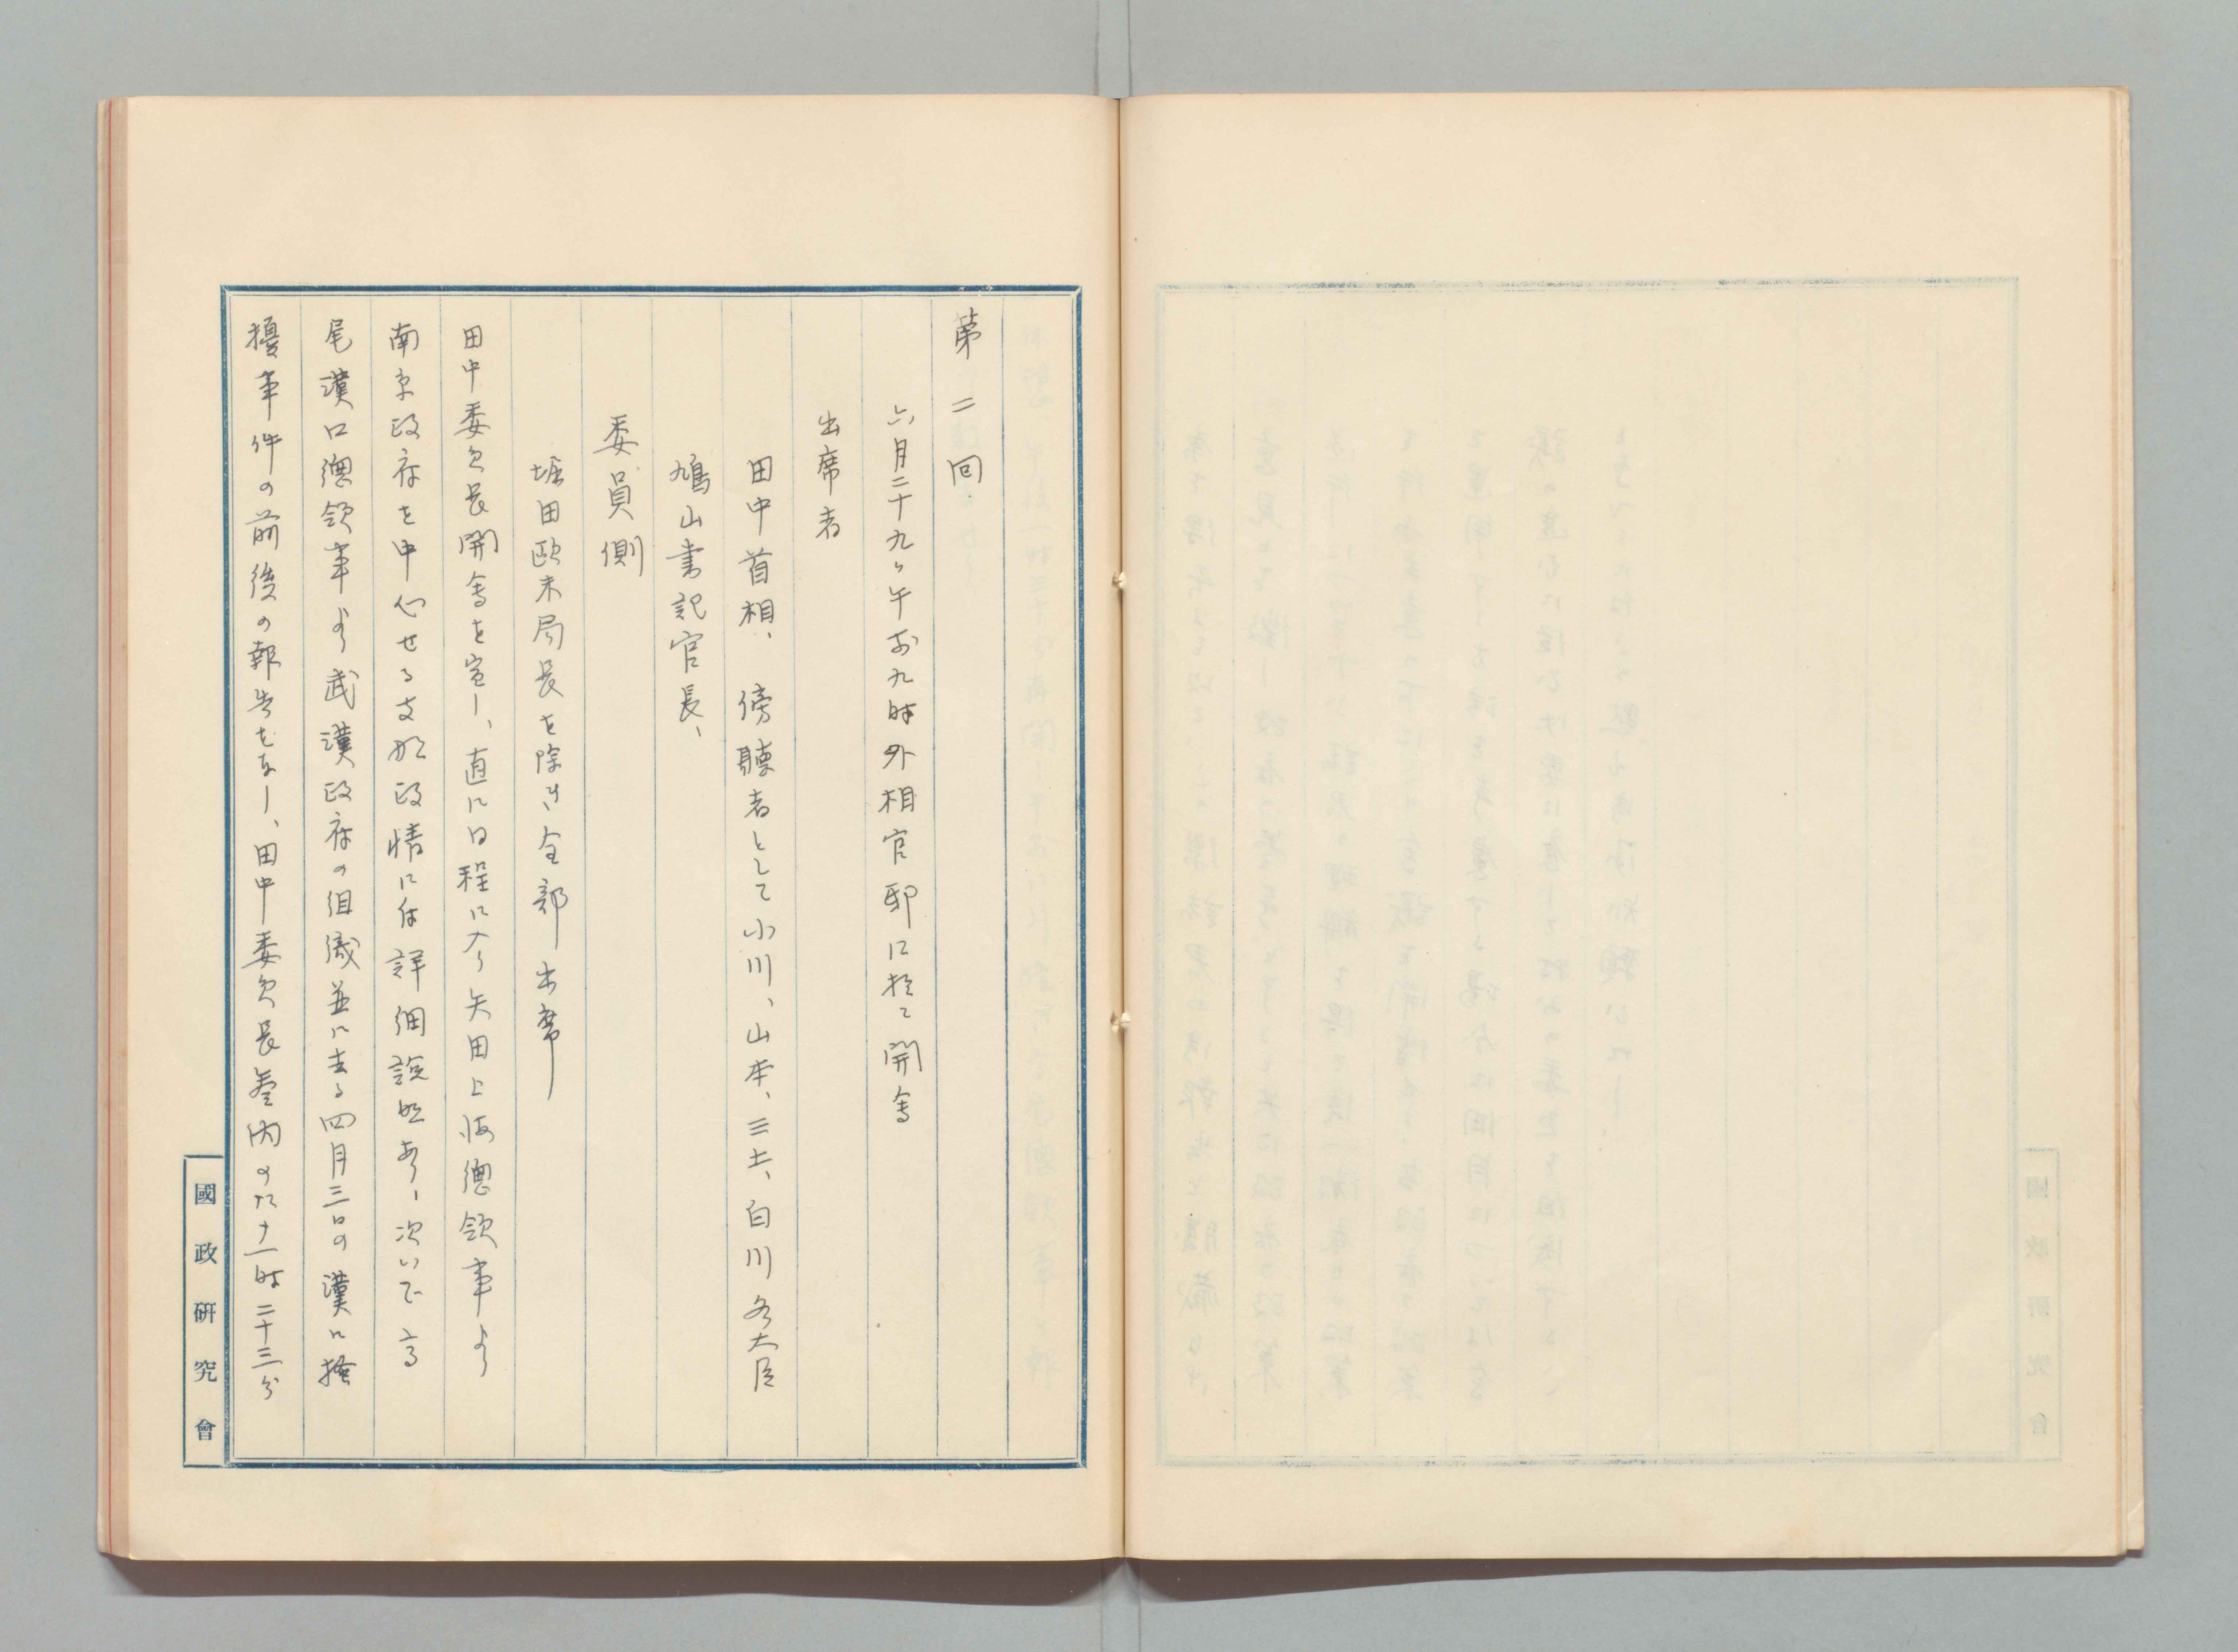 第二回.
六月二十九日午前九時外相官邸に於て開會
出席者
田中首相、傍聽者として小川、山本、三土、白川各大臣
鳩山書記官長、
委員側
堀田歐米局長を除き全部出席
田中委員長開會を宣し、直に日程に入り矢田上海總領事より
南京政府を中心せる支那政情に付詳細説明あり、次いで高
尾漢口總領事より武漢政府の組織並に去る四月三日の漢口掻
擾事件の前後の報告をなし、田中委員長參内のため十一時二十三分
國政研究會